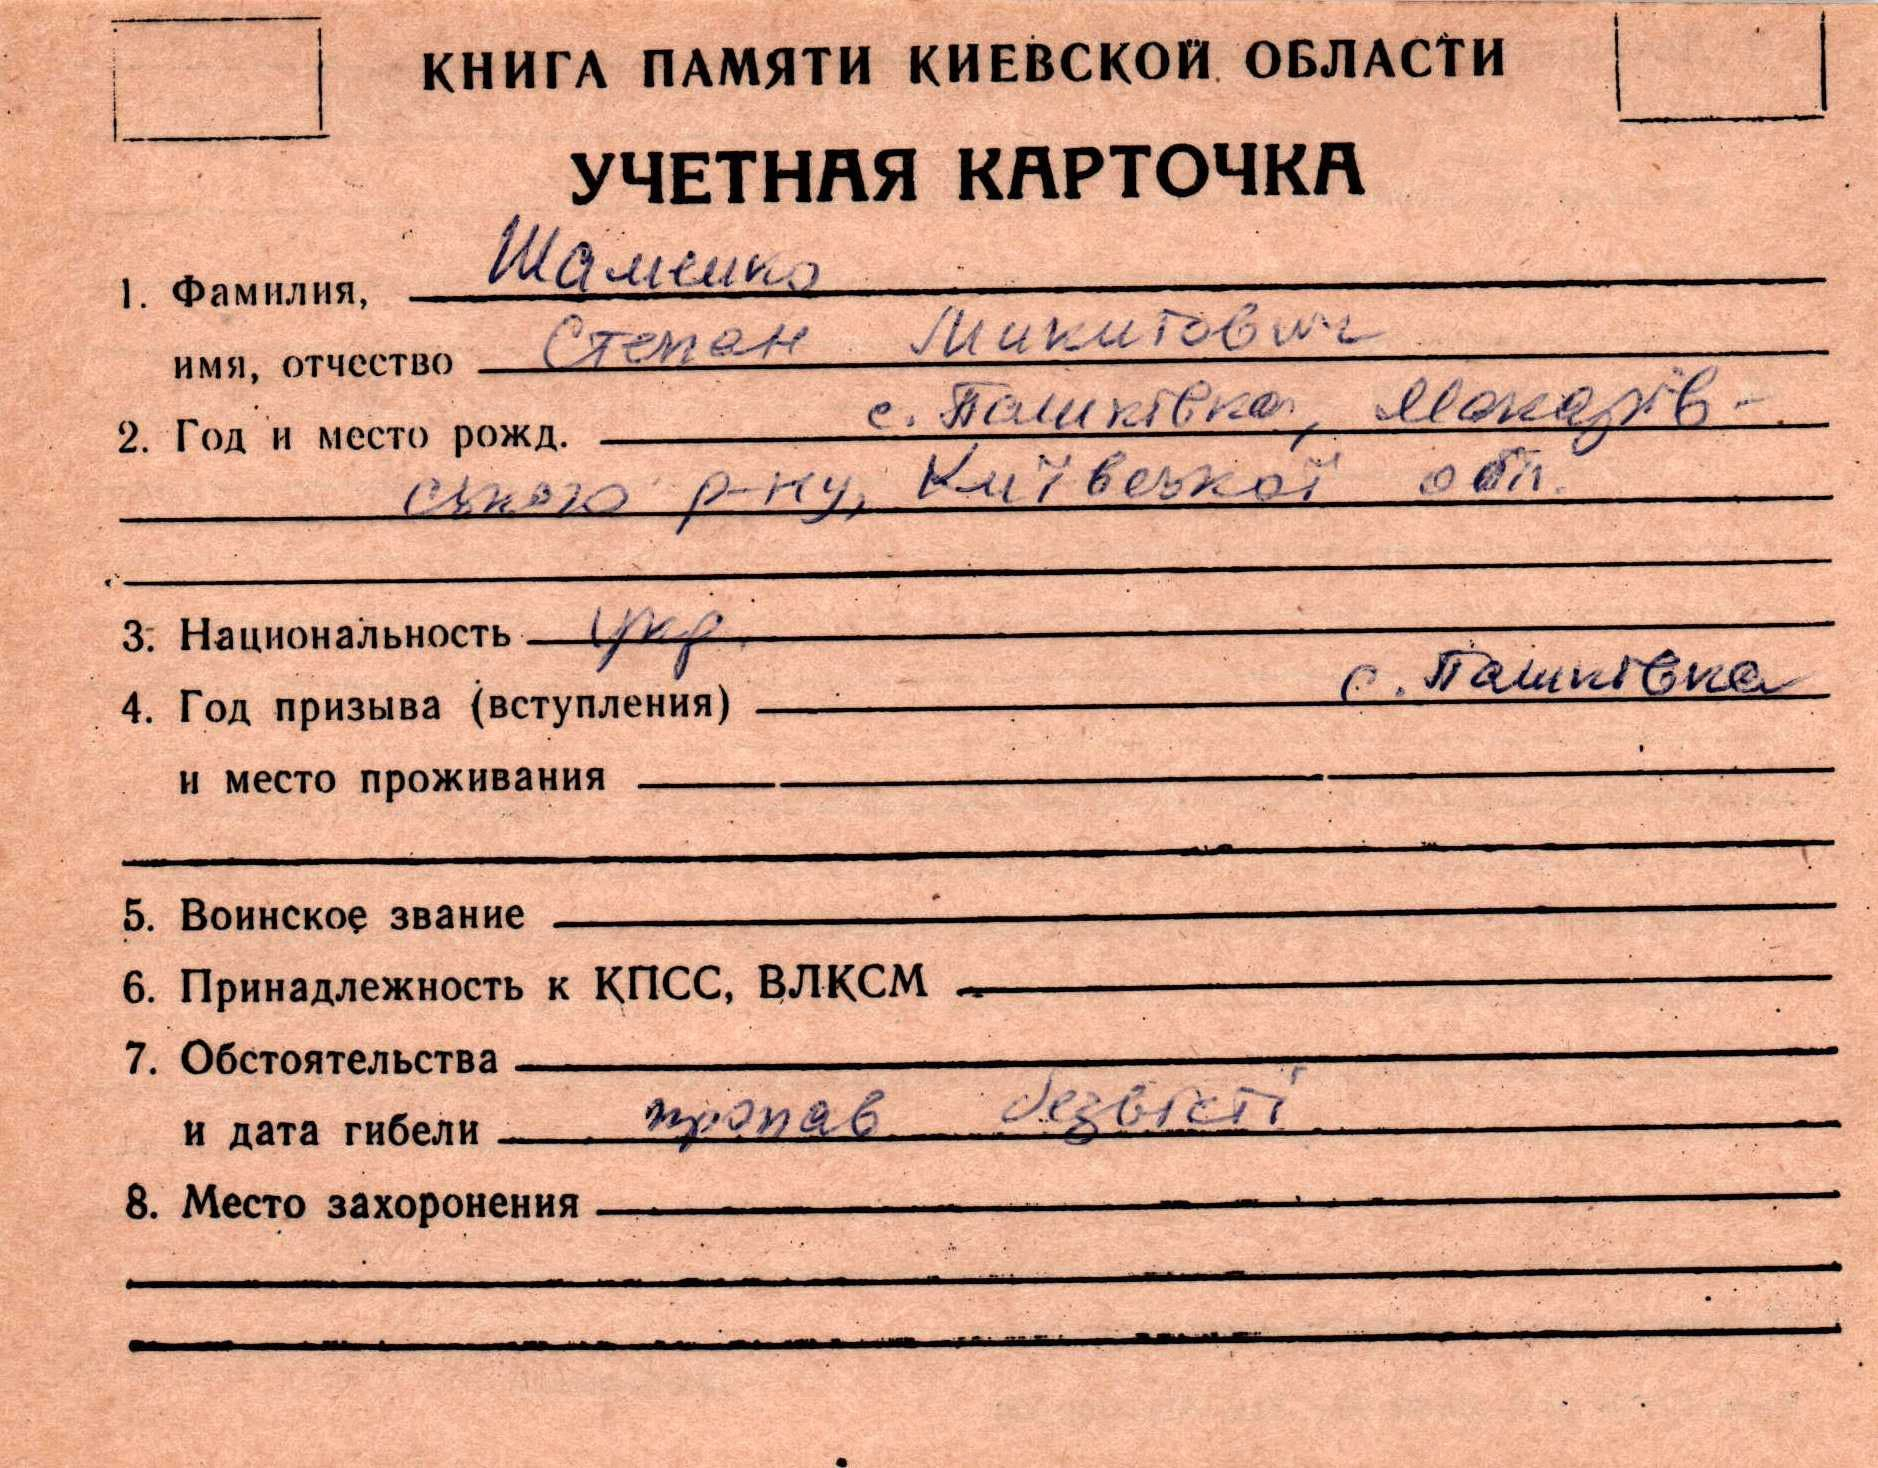 КНИГА ПАМЯТИ КИЕВСКОЙ ОБЛАСТИ
УЧЕТНАЯ КАРТОЧКА
1. Фамилия, Шаменко
имя, отчество Степан Микитович
2. Год и место рожд. с. Пашківка, Макарів-
ського р-ну, Київської обл.
3. Национальность укр.
4. Год призыва (вступления) с. Пашківка
и место проживания
5. Воинское звание
6. Принадлежность к КПСС, ВЛКСМ
7. Обстоятельства
и дата гибели пропав безвісті
8. Место захоронения